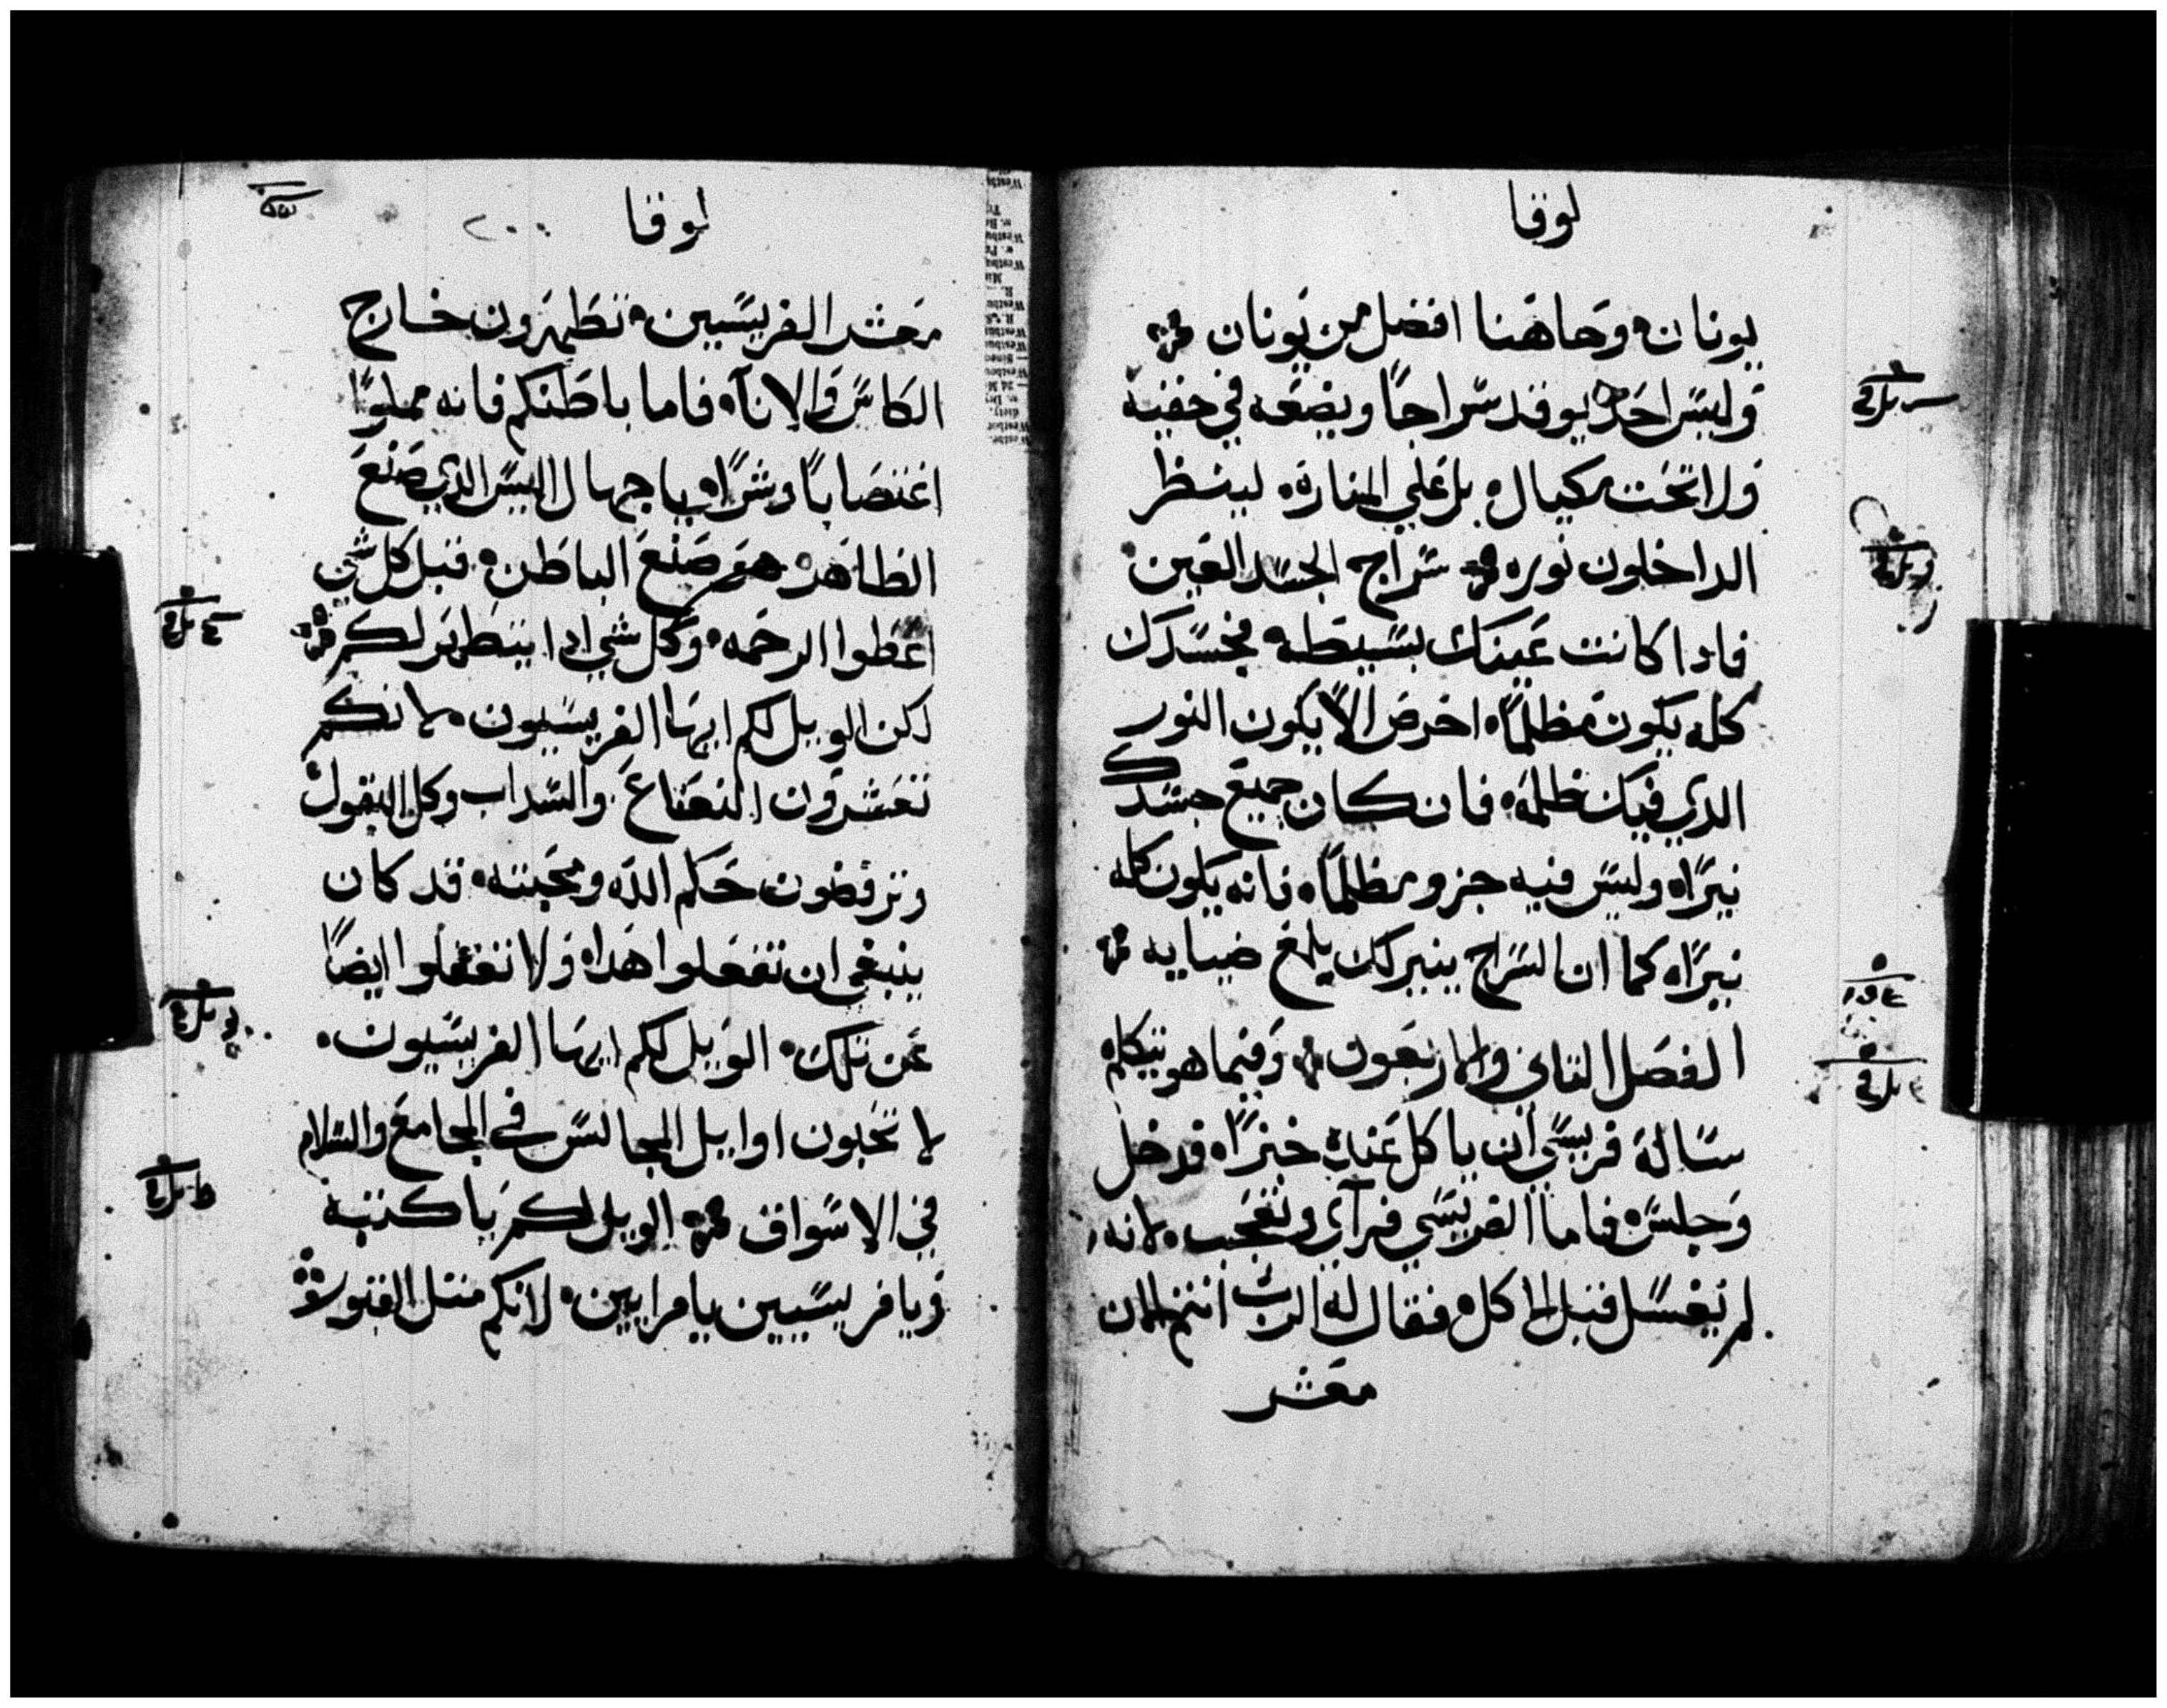 لوقا
يونان، وهاهنا افضل من يونان
وليس احد يوقد سراجًا ويضعه في خفية
ولا تحت مكيال، بل علي المنارة، لينظر
الداخلون نوره سراج الجسد العين،
فادا كانت عينك بسيطه، فجسدك
كله يكون مظلمًا، احرص الّا يكون النور
الدي فيك ظلمة، فان كان جميع جسدك
نيرًا، وليس فيه جزو مظلمًا، فانه يكون كله
نيرًا، كما ان السراج ينير لك يلمع ضيايه
الفصل التاني والاربعون، وفيما هو يتكلم
ساله فريسي ان ياكل عنده خبزًا، فدخل
وجلس، فاما الفريسي فرآي وتعجب، لانه
لم يغسل قبل الاكل، فقال له الرب انتم الان
معشر
لوقا
٢٠٠
معشر الفريسيين، تطهرون خارج
الكاس والانآ، فاما باطنكم فانه مملوًا
اغتصابًا وشرًا، ياجهال اليس الدي صنع
الظاهر، هو صنع الباطن، قبل كل شي
اعطوا الرحمه، وكل شي ادا يتطهر لكم
لكن الويل لكم ايها الفريسيون، لانكم
تعشرون النعناع، والسداب وكل البقول،
وترفضون حكم الله ومحبته، قد كان
ينبغي ان تفعلوا هدا، ولا تغفلوا ايضًا
عن تلك، الويل لكم ايها الفريسيون،
لا تحبون اوايل المجالس في المجامع والسلام
في الاسواق الويل لكم ياكتبة
ويا فريسيين يا مرايين، لانكم متل القبور